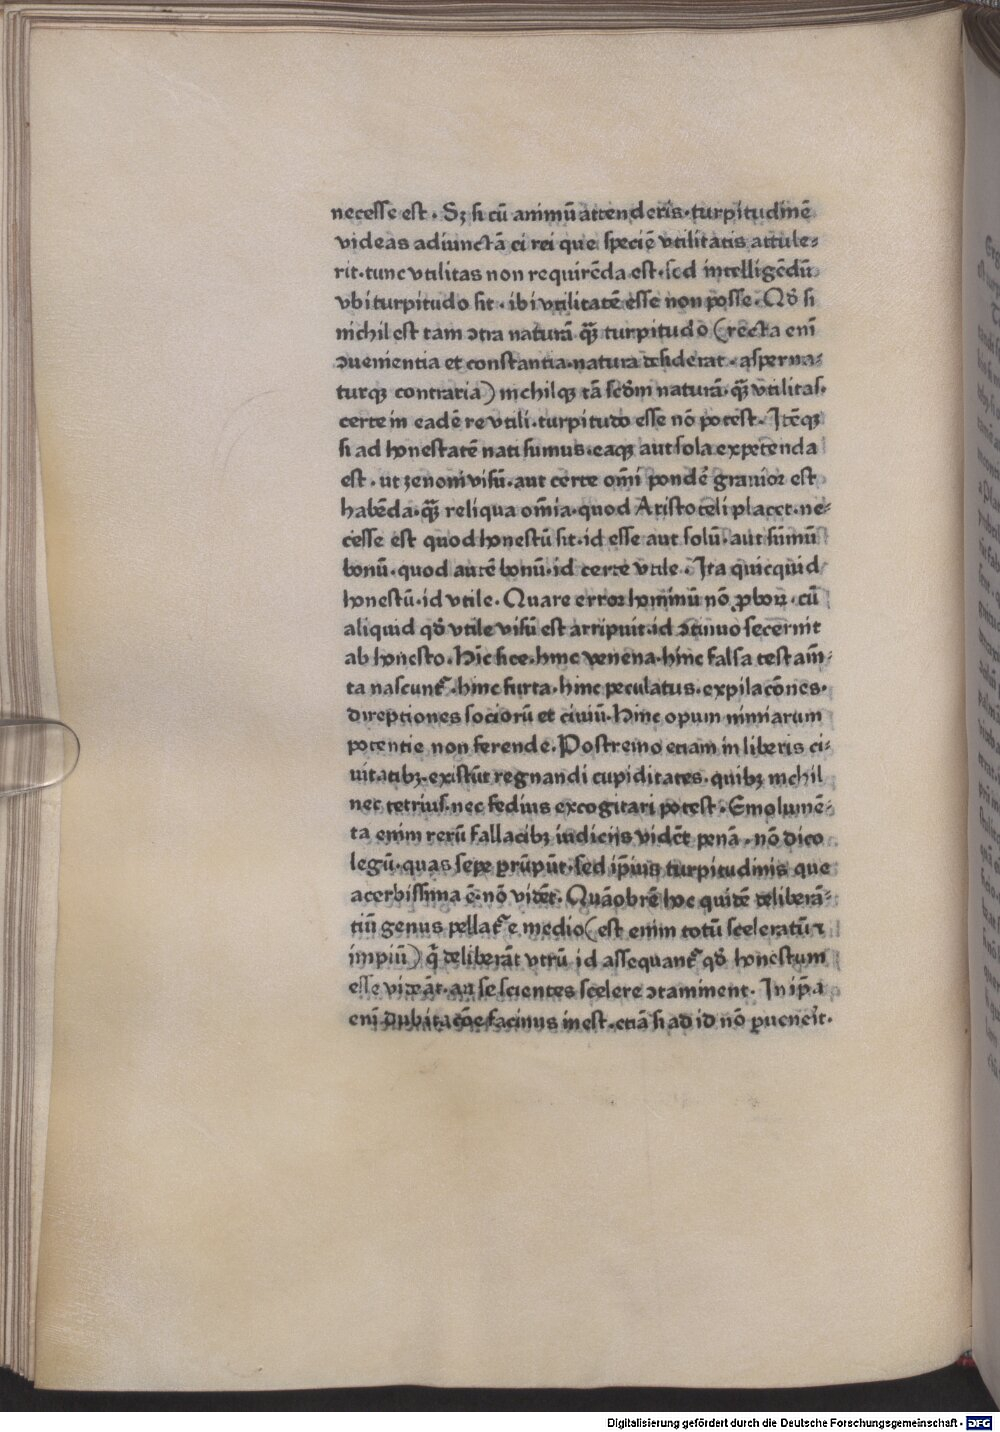 necesse est. Sꝫ si cū animū attenderis·turpitudinē
videas adiunctā ei rei que speciē vtilitatis attule-
rit·tunc vtilitas non requirēda est·sed intelligēdū
vbi turpitudo sit·ibi vtilitatē esse non posse. Qd̛ si
nichil est tam ↄtra naturā q̄ꝫ turpitudo (recta enī
ↄuenientia et constantia·natura desiderat·asperna-
turqꝫ contraria) nichilqꝫ tā scd̄m naturā·q̄ꝫ vtilitas·
certe in eadē re vtili·turpitudo esse nō potest. Itēqꝫ
si ad honestatē nati sumus·eaqꝫ aut sola expetenda
est·ut zenoni visū·aut certe om̄i pondē grauior est
habēda·q̄ꝫ reliqua om̄ia·quod Aristoteli placet·ne-
cesse est quod honestū sit·id esse aut solū·aut sūmū
bonū·quod autē bonū·id certe vtile. Ita quicquid
honestū·id vtile. Quare error hominū nō ꝓboꝝ·cū
aliquid qd̛ vtile visū est arripuit·id ↄtinuo secernit
ab honesto. Hīc sice·hinc venena·hinc falsa testam̄-
ta nascunt᷑·hinc furta·hinc peculatus·expilacōnes·
direptiones socioꝛū et ciuiū·Hinc opum nimiarum
potentie non ferende. Postremo etiam in liberis ci-
uitatibꝫ·existūt regnandi cupiditates·quibꝫ nichil
nec tetrius·nec fedius excogitari potest. Emolumē-
ta enim rerū fallacibꝫ iudicijs vidēt penā·nō dico
legū·quas sepe ꝑrūpūt·sed ip̄ius turpitudinis que
acerbissima ē·nō vidēt. Quāobrē hoc quidē deliberā-
tiū genus pellat᷑ e medio (est enim totū sceleratū ⁊
impiū) q̄ deliberāt vtrū id assequant᷑ qd̛ honestum
esse videāt·an se scientes scelere ↄtaminent. In ip̄a
enī dubitacōe facinus inest·etiā si ad id nō ꝑuenēit·
Digitalisierung gefördert durch die Deutsche Forschungsgemeinschaft - DFG